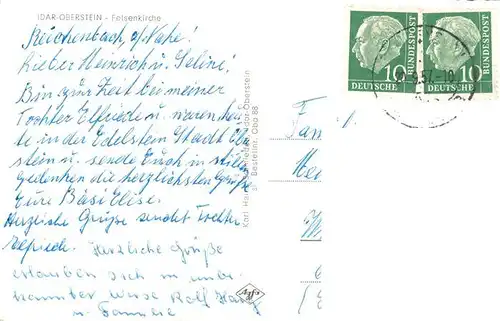 IDAR-OBERSTEIN - Felsenkirche
Reichenbach, a/Nahe!
Lieber Heinrich u. Seline!
Bin zur Zeit bei meiner
Tochter Elfriede u. waren heu-
te in der Edelstein Stadt Ober-
stein u. sende Euch in stillem
gedenken die herzlichsten Grüße
Eure Bäsi Elise.
Herzliche Grüße sendet Tochter
Elfriede. Herzliche Grüße
erlauben sich in unbe-
kannter Weise Rolf
u. Familie
Idar-Oberstein
Bestellnr. Obo 88
Agfa
10 DEUTSCHE BUNDESPOST
10 DEUTSCHE BUNDESPOST
Fam